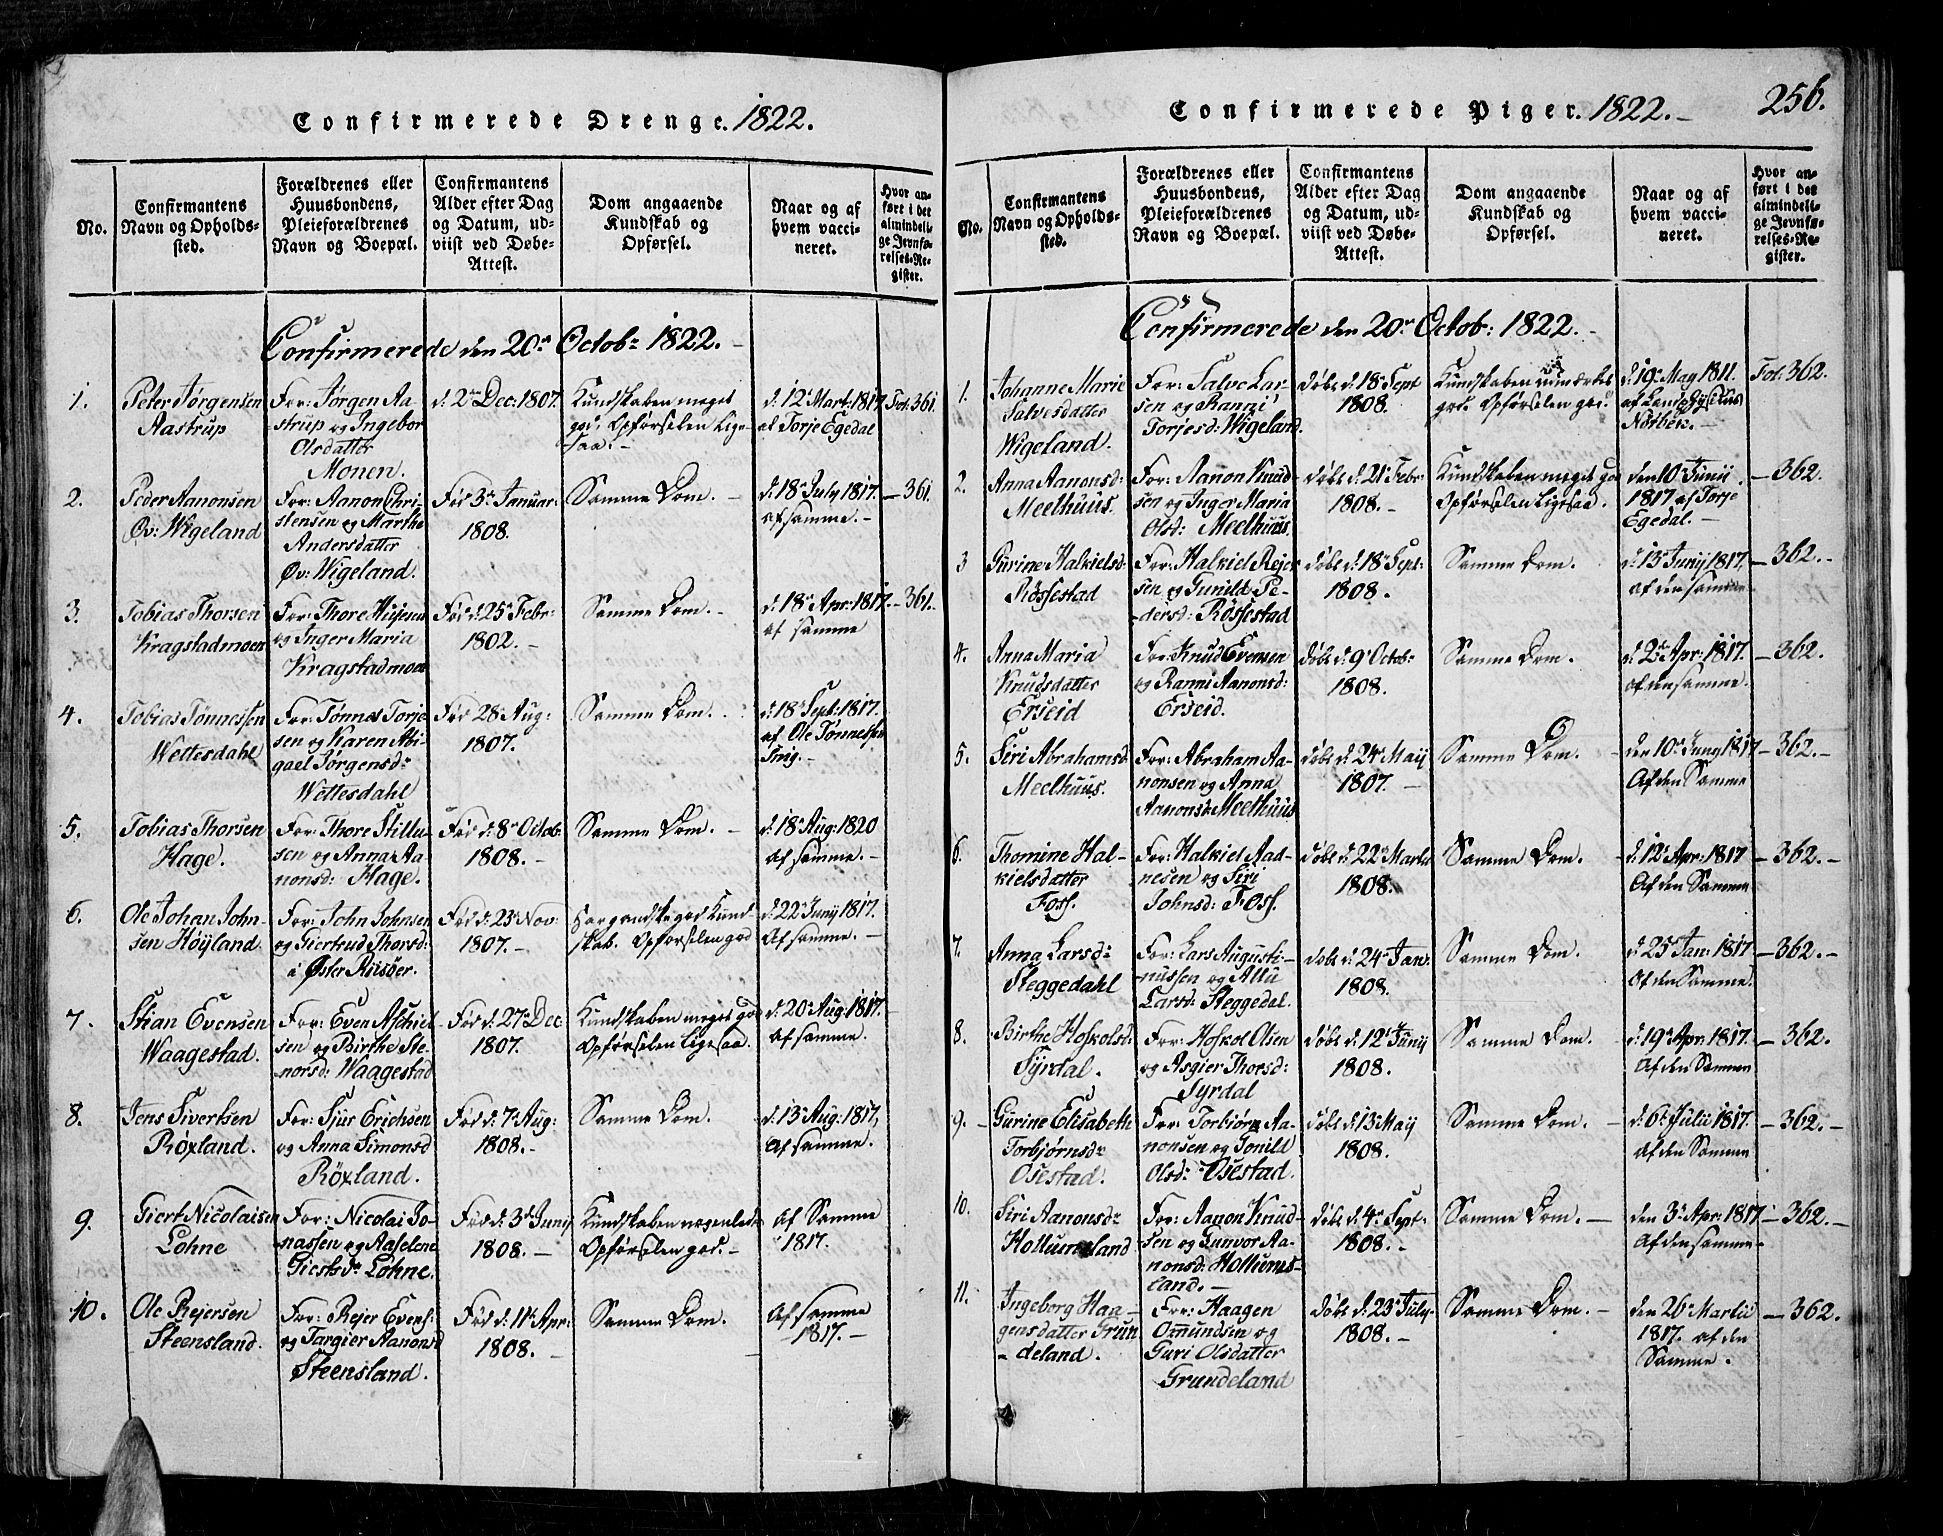 Confirmerede Drenge. 1822.
No.
Confirmantens
Navn og Opholds-
sted.
Forældrenes eller
Huusbondens,
Pleieforældrenes
Navn og Boepæl.
Confirmantens
Alder efter Dag
og Datum, ud-
viist ved Døbe-
Attest.
Dom angaaende
Kundskab og
Opførsel.
Naar og af
hvem vacci-
neret.
Hvor an-
ført i det
almindeli-
ge Jevnfø-
relses-Re-
gister.
Confirmerede den 20de Octobr 1822.
1.
Peter Jørgensen
Aastrup
For: Jørgen Aa-
strup og Ingebor
Olsdatter
Monen.
d. 2den Dec: 1807.
Kundskaben meget
god, Opførselen Lige-
saa.
d. 12te Mart: 1817
af Torje Egedal
Fol. 361.
2.
Peder Aanonsen
Øv: Wigeland
For: Aanon Chri-
stensen og Marthe
Andersdatter
Øv: Wigeland.
Fød 3de Januar:
1808.
Samme Dom.
d. 18de July 1817.
af samme.
361.
3.
Tobias Thorsen
Kragstadmoen
For: Thore
og Inger Maria
Kragstadmoen
Fød d: 25de Febr:
1802.
Samme Dom.
d. 18de Apr: 1817.
af samme
361.
4.
Tobias Tønnessen
Wettesdahl
For: Tønnes Torje-
sen og Karen Abi-
gael Jørgensdr
Wettesdahl
Fød 28de Aug:
1807.
Samme Dom.
d. 18de Sept: 1817.
af Ole Tønnessen
5.
Tobias Thorsen
Hage.
For: Thore Stillu-
sen og Anna Aa-
nonsd: Hage.
Fød d: 8de Octob
1808.
Samme Dom.
d. 18de Aug: 1820
af samme.
6.
Ole Johan John-
sen Höyland.
For: John Johnsen
og Giertrud Thorsd:
i Øster Riisöer.
Fød d: 23de Nov:
1807.
god Kund-
skab. Opførselen god
d: 22de Juny 1817.
Af samme.
7.
Stian Evensen
Waagestad.
For: Even Aschiel-
sen og Birthe Ste-
norsd: Waagestad
Fød d: 27de Dec
1807.
Kundskaben meget god
Opførselen Ligesaa.
d: 20de Aug: 1817.
Af samme.
8.
Jens Sivertsen
Röxland.
For: Sjur Erichsen
og Anna Simonsd
Röxland.
Fød d: 7de Aug:
1808.
Samme Dom.
d: 13de Aug: 1817,
Af samme.
9.
Giert Nicolaisen
Lohne
For: Nicolai Jo-
nassen og Aaselene
Giertsdr Lohne.
Fød d: 3de Juny
1808.
Kundskaben nogenlede
Opførselen god.
Af Samme
1817.
10.
Ole Rejersen
Steensland.
For: Rejer Evens:
og Targier Aanonsd
Steensland.
Fød d: 11te Apr:
1808.
Samme Dom.
Af samme
1817.
Confirmerede Piger. 1822.
256.
No.
Confirmantens
Navn og Opholds-
sted.
Forældrenes eller
Huusbondens,
Pleieforældrenes
Navn og Boepæl.
Confirmantens
Alder efter Dag
og Datum, ud-
viist ved Døbe-
Attest.
Dom angaaende
Kundskab og
Opførsel.
Naar og af
hvem vacci-
neret.
Hvor an-
ført i det
almindeli-
ge Jevnfø-
relses-Re-
gister.
Confirmerede den 20de Octob: 1822.
1.
Johanne Marie
Salvesdatter
Wigeland.
For: Salve Lar-
sen og Ranni
Torjesd: Wigeland.
Døbt d: 18de Sept
1808.
Kundskaben
god. Opførselen god.
d. 19de May 1811.
af Landphysikus
Norbek.
Fol. 362.
2.
Anna Aanonsd:
Meelhuus.
For: Aanon Knud-
sen og Inger Maria
Olsd: Meelhuus.
Døbt d. 21de Febr
1808.
Kundskaben meget god
Opførselen Ligesaa.
den 10de Junii
1817 af Torje
Egedal.
362.
3
Gurine Halkielsd:
Rössestad
For: Halkiel Rejer-
sen og Gunild Pe-
dersd: Rössestad
Døbt d. 18de Sept:
1808.
Samme Dom.
d: 13de Junij 1817.
af den samme
362.
4.
Anna Maria
Knudsdatter
Erseid
For: Knud Evensen
og Ranni Aanonsd:
Erseid.
Døbt d. 9de Octobr
1808.
Samme Dom.
d. 2den Apr: 1817.
af den samme.
362.
5.
Siri Abrahamsd.
Meelhuus.
For: Abraham Aa-
nonsen og Anna
Aanonsd: Meelhuus
Døbt d: 24de Maij
1807.
Samme Dom.
den 10de Juny 1817
Af den Samme
362.
6.
Thomine Hal-
kielsdatter
Foss.
For: Halkiel Aad-
nesen og Siri
Johnsd: Foss.
Døbt d. 22de Martii
1808.
Samme Dom.
d: 12te Apr: 1817
Af den Samme
362.
7.
Anna Larsd:
Steggedahl
For: Lars Augusti-
nussen og Allu
Larsd: Steggedal.
døbt d. 24de Jan:
1808.
Samme Dom.
d: 25de Jan: 1817
Af den Samme.
362.
8.
Birthe Hoskolsd.
Syrdal.
For: Hoskol Olsen
og Asgier Thorsd:
Syrdal
Døbt d: 12te Junij
1808.
Samme Dom.
d: 19de Apr: 1817.
Af den Samme
362.
9.
Gurine Elisabeth
Torbjørnsdr
Osestad.
For: Torbjörn Aa-
nonsen og Gonild
Olsd: Osestad.
døbt d. 13de Maij
1808.
Samme Dom.
d: 6te Julii 1817.
Af den Samme
362.
10.
Siri Aanonsdr
Hollumsland
For: Aanon Knud-
sen og Gunvor Aa-
nonsd: Hollums-
land.
Døbt d. 4de Sept:
1808.
Samme Dom.
den 3de Apr: 1817
Af den samme
362.
11.
Ingeborg Haa-
gensdatter Grun
deland.
For: Haagen
Omundsen og
Guri Olsdatter
Grundeland
Døbt d: 23de July
1808.
Samme Dom.
den 26de Martii
1817. af den
Samme.
362.